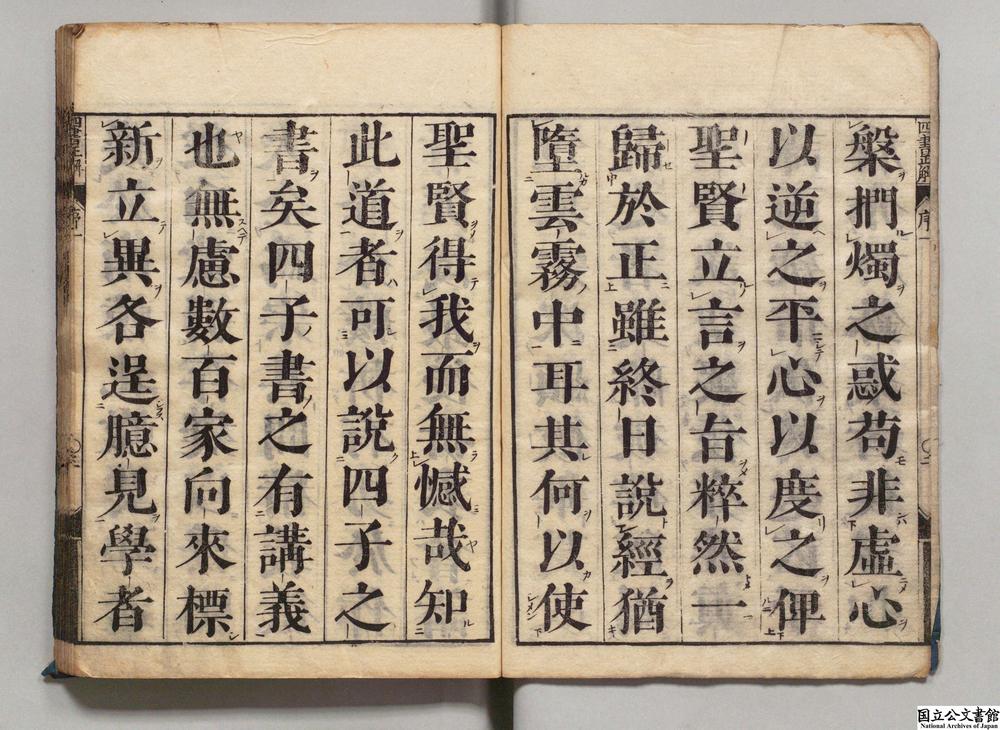 槃捫燭之惑苟非虛心
以逆之平心以度之俾
聖賢立言之旨粹然一
歸於正雖終日說經猶
墮雲霧中耳其何以使
聖賢得我而無憾哉知
此道者可以說四子之
書矣四子書之有講義
也無慮數百家向來標
新立異各逞臆見學者
四書正解
序一
国立公文書館
National Archives of Japan